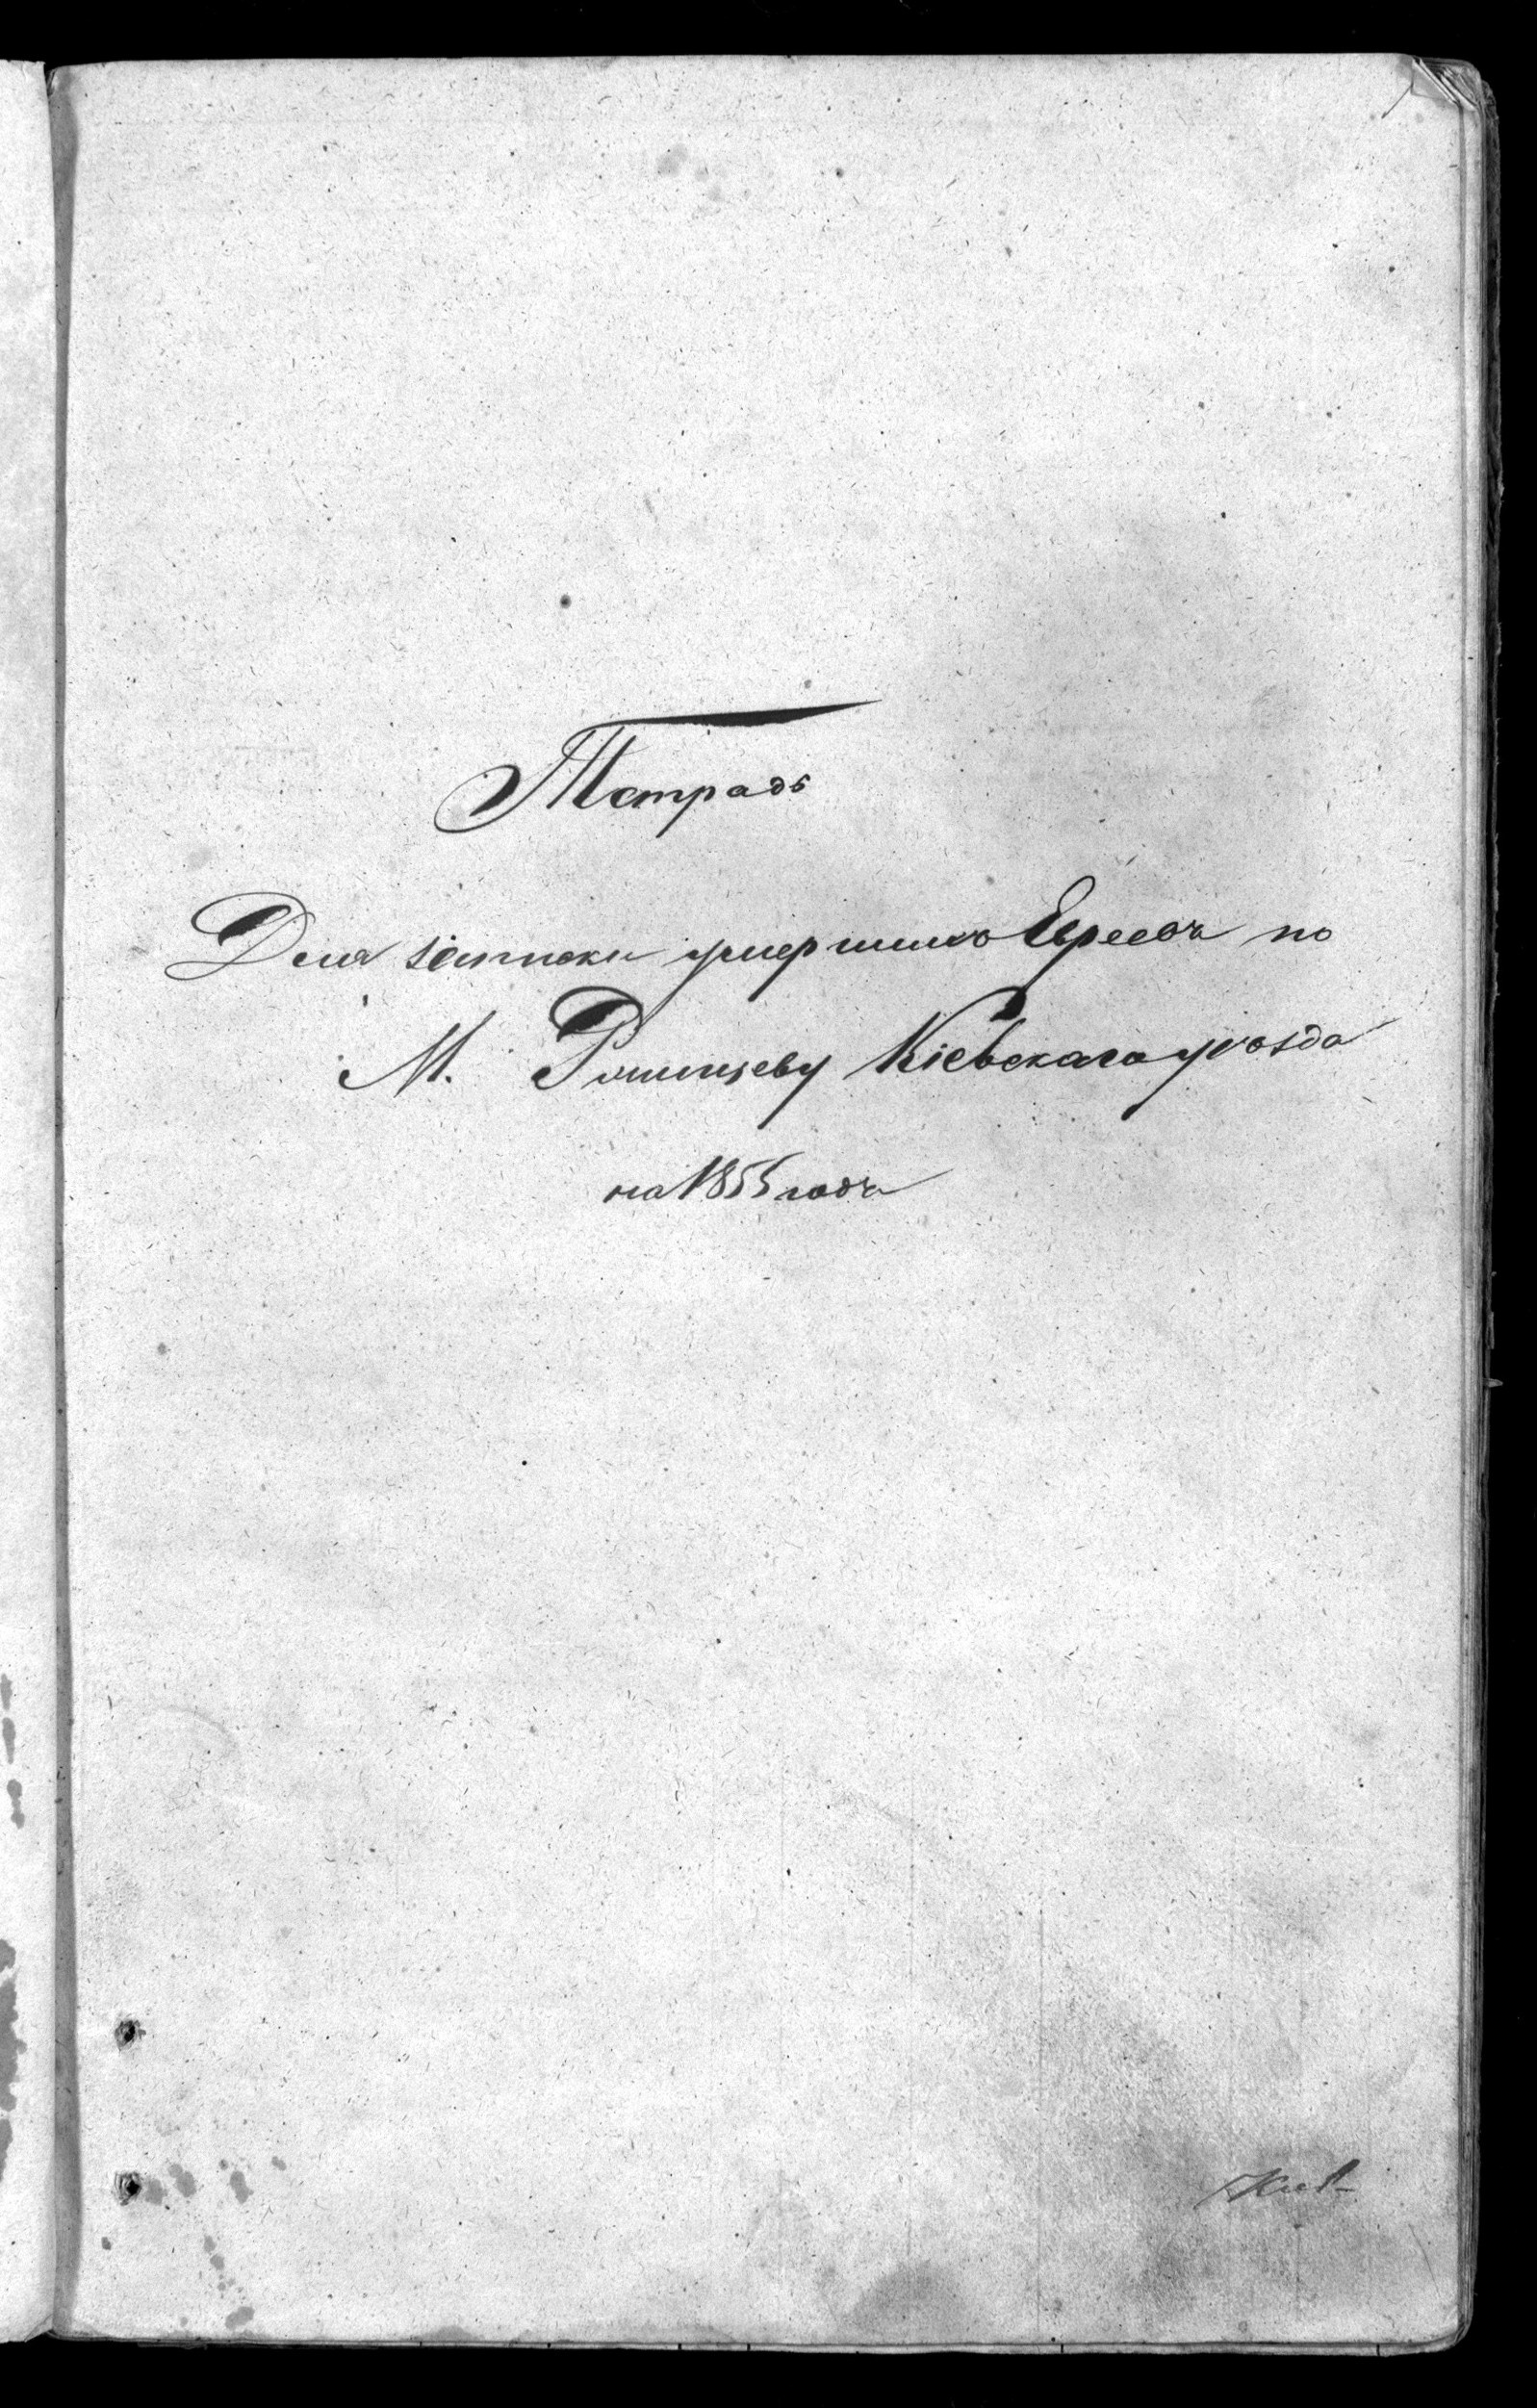 Тетрадь
Для записки умершихъ Евреевъ по
М. Рошищеву Кіевскаго уѣзда
на 1855 годъ